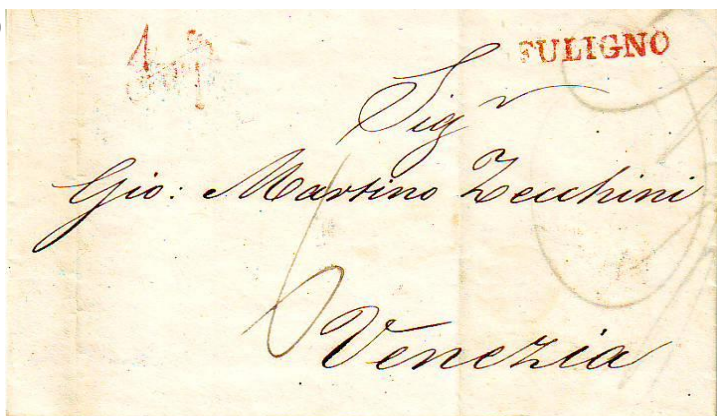 FULIGNO
Sigr
Gio: Martino Zecchini
6
Venezia